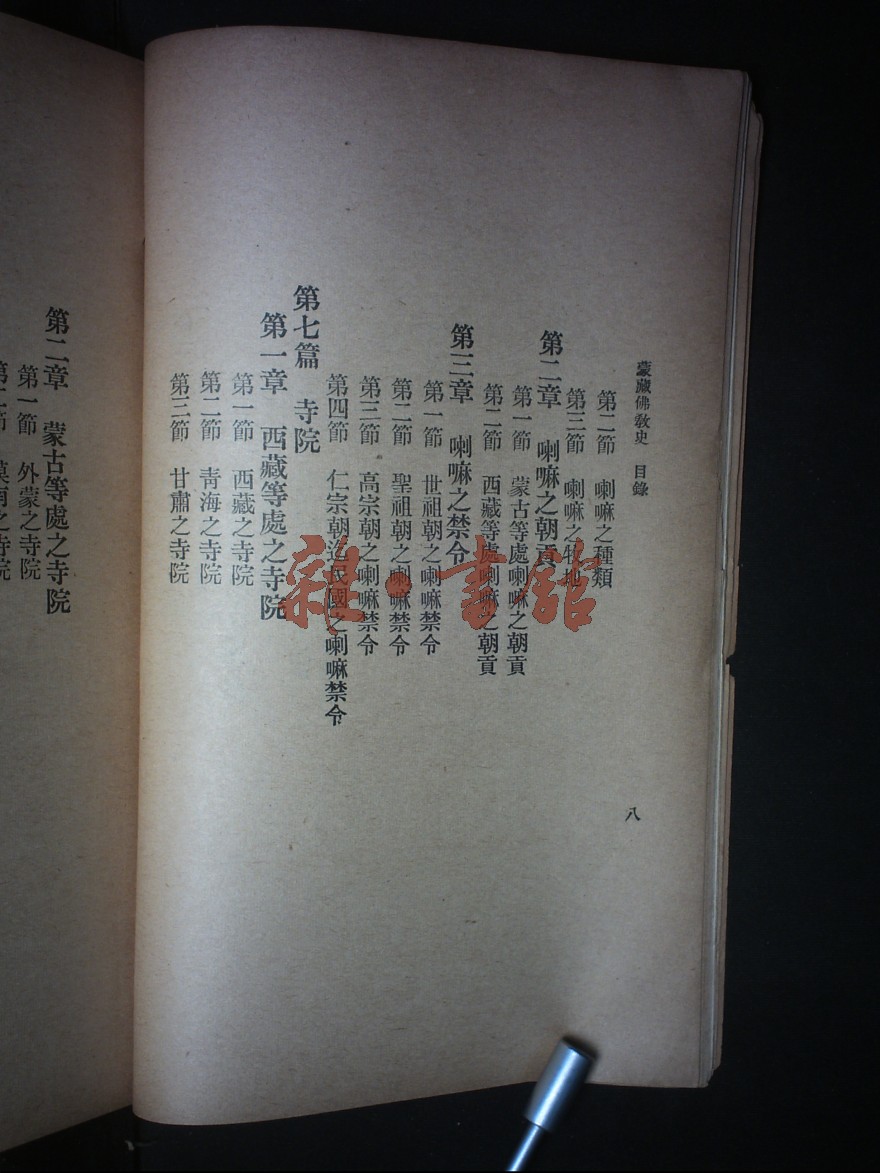 蒙藏佛敎史　目錄
第二節　喇嘛之種類
第三節　喇嘛之牧地
第二章　喇嘛之朝貢
第一節　蒙古等處喇嘛之朝貢
第二節　西藏等處喇嘛之朝貢
第三章　喇嘛之禁令
第一節　世祖朝之喇嘛禁令
第二節　聖祖朝之喇嘛禁令
第三節　高宗朝之喇嘛禁令
第四節　仁宗朝迄民國之喇嘛禁令
第七篇　寺院
第一章　西藏等處之寺院
第一節　西藏之寺院
第二節　靑海之寺院
第三節　甘肅之寺院
八
第二章　蒙古等處之寺院
第一節　外蒙之寺院
之寺院
雜·書館